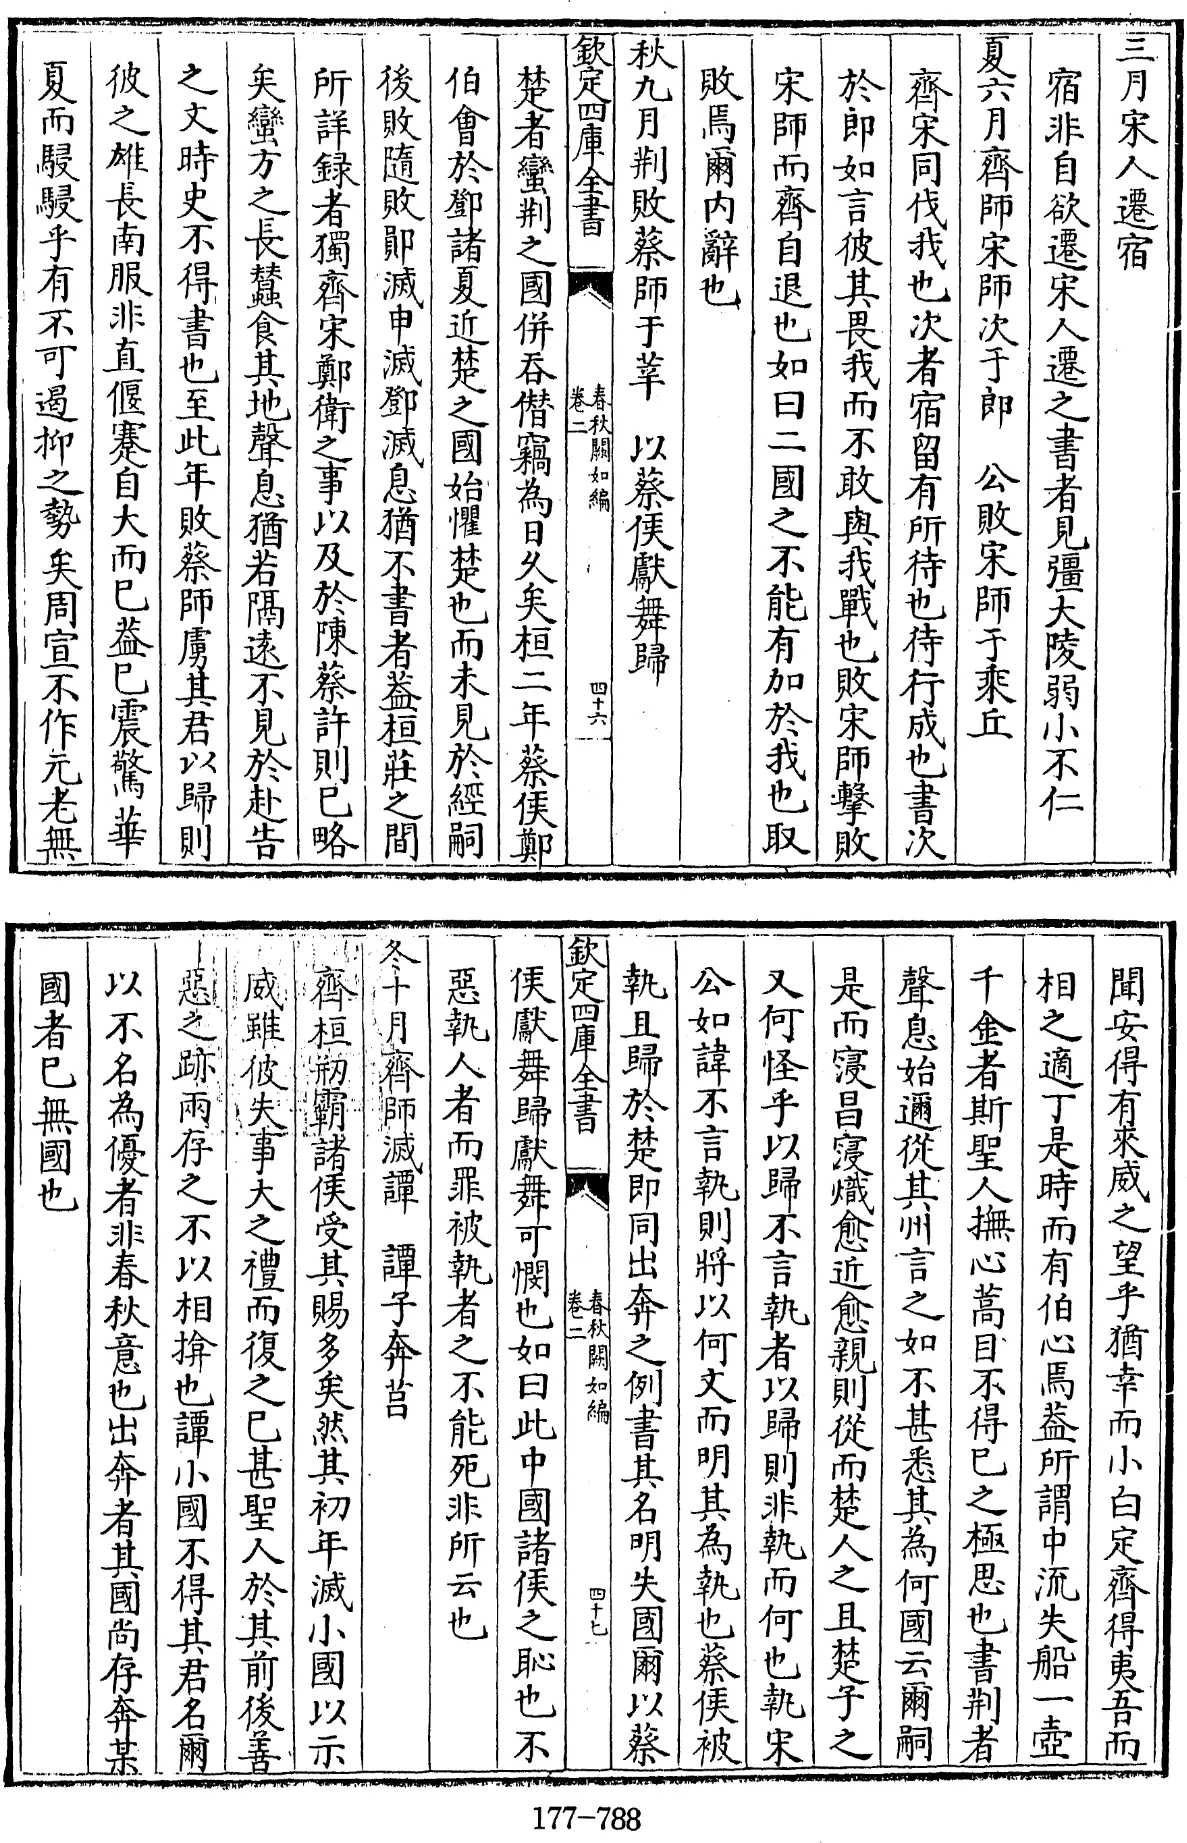 三月宋人遷宿
宿非自欲遷宋人遷之書者見彊大陵弱小不仁
夏六月齊師宋師次于郎　公敗宋師于乘丘
齊宋同伐我也次者宿留有所待也待行成也書次
於郎如言彼其畏我而不敢與我戰也敗宋師擊敗
宋師而齊自退也如曰二國之不能有加於我也取
敗焉爾内辭也
秋九月荆敗蔡師于莘　以蔡侯獻舞歸
欽定四庫全書
春秋闕如編
卷二
四十六
楚者蠻荆之國併吞僭竊為日久矣桓二年蔡侯鄭
伯會於鄧諸夏近楚之國始懼楚也而未見於經嗣
後敗隨敗鄖滅申滅鄧滅息猶不書者葢桓莊之間
所詳録者獨齊宋鄭衛之事以及於陳蔡許則已略
矣蠻方之長蠶食其地聲息猶若隔遠不見於赴告
之文時史不得書也至此年敗蔡師虜其君以歸則
彼之雄長南服非直偃蹇自大而已葢已震驚華
夏而駸駸乎有不可遏抑之勢矣周宣不作元老無
聞安得有來威之望乎猶幸而小白定齊得夷吾而
相之適丁是時而有伯心焉葢所謂中流失船一壺
千金者斯聖人撫心蒿目不得已之極思也書荆者
聲息始邇從其州言之如不甚悉其為何國云爾嗣
是而寖昌寖熾愈近愈親則從而楚人之且楚子之
又何怪乎以歸不言執者以歸則非執而何也執宋
公如諱不言執則將以何文而明其為執也蔡侯被
執且歸於楚即同出奔之例書其名明失國爾以蔡
欽定四庫全書
春秋闕如編
卷二
四十七
侯獻舞歸獻舞可憫也如曰此中國諸侯之恥也不
惡執人者而罪被執者之不能死非所云也
冬十月齊師滅譚　譚子奔莒
齊桓剏霸諸侯受其賜多矣然其初年滅小國以示
威雖彼失事大之禮而復之已甚聖人於其前後善
惡之跡兩存之不以相揜也譚小國不得其君名爾
以不名為優者非春秋意也出奔者其國尚存奔某
國者已無國也
177-788